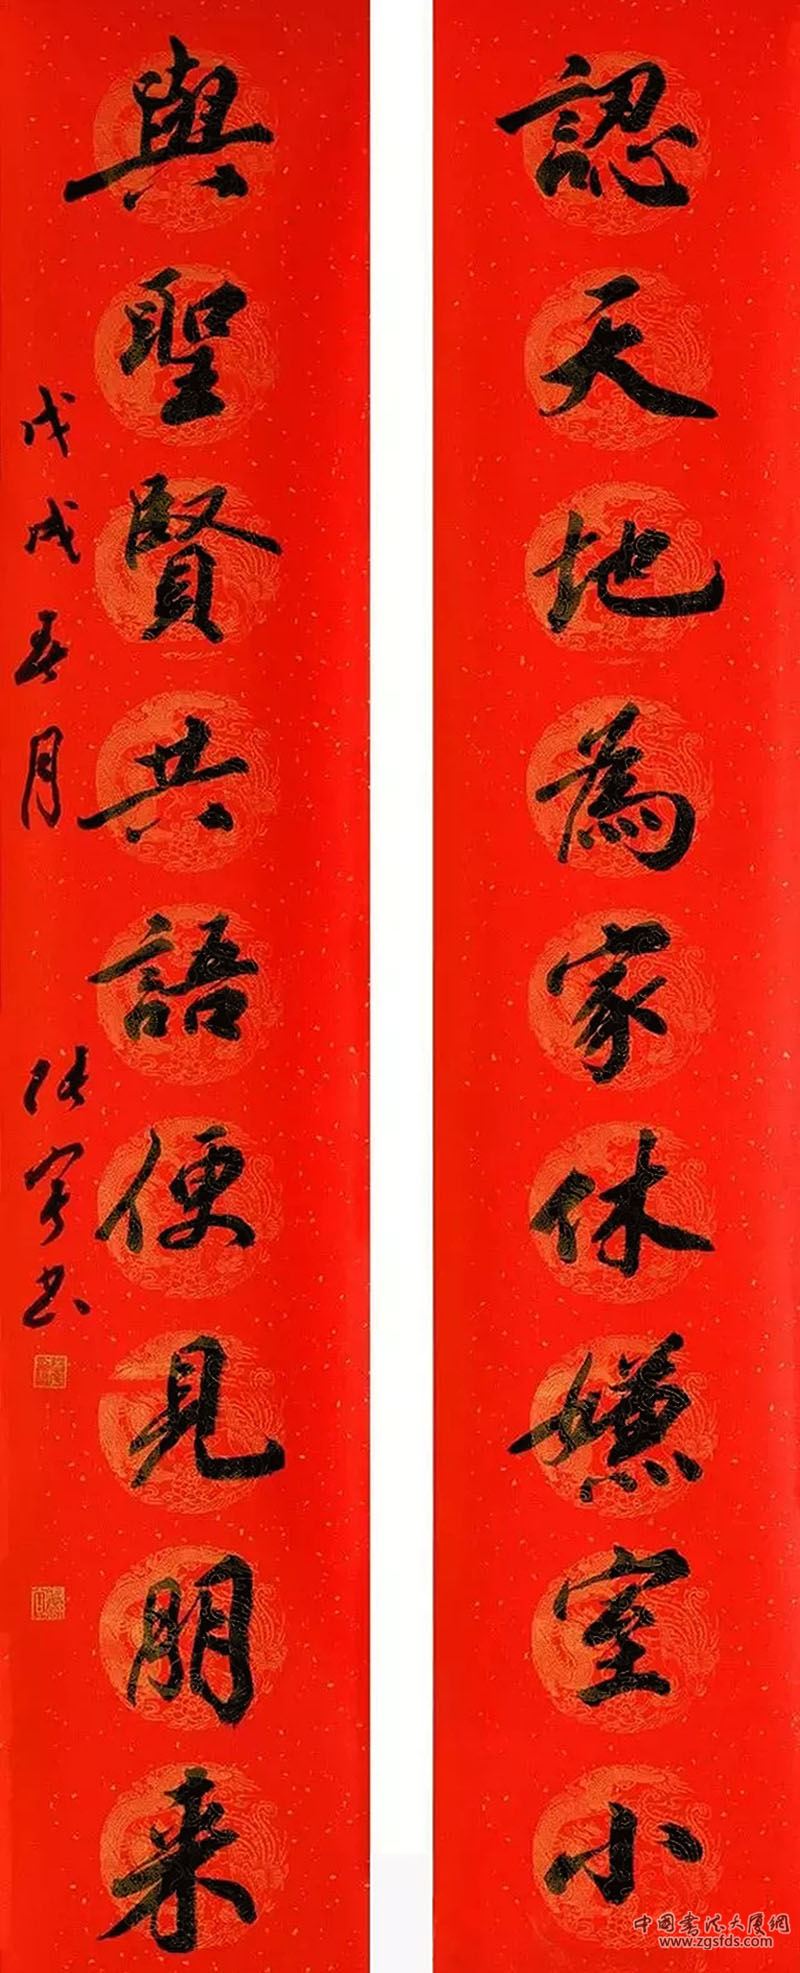 認天地為家休嫌室小
與聖賢共語便見朋来
戊戌春月
張寧书
中國書法大厦網
www.zgsfds.com